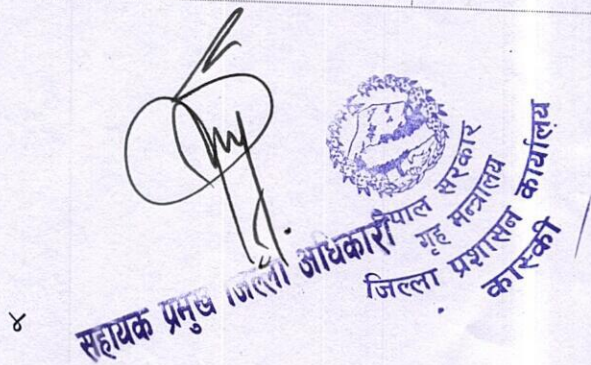 सहायक प्रमुख जिल्ला अधिकारी
नेपाल सरकार
गृह मन्त्रालय
जिल्ला प्रशासन कार्यालय
कास्की
४